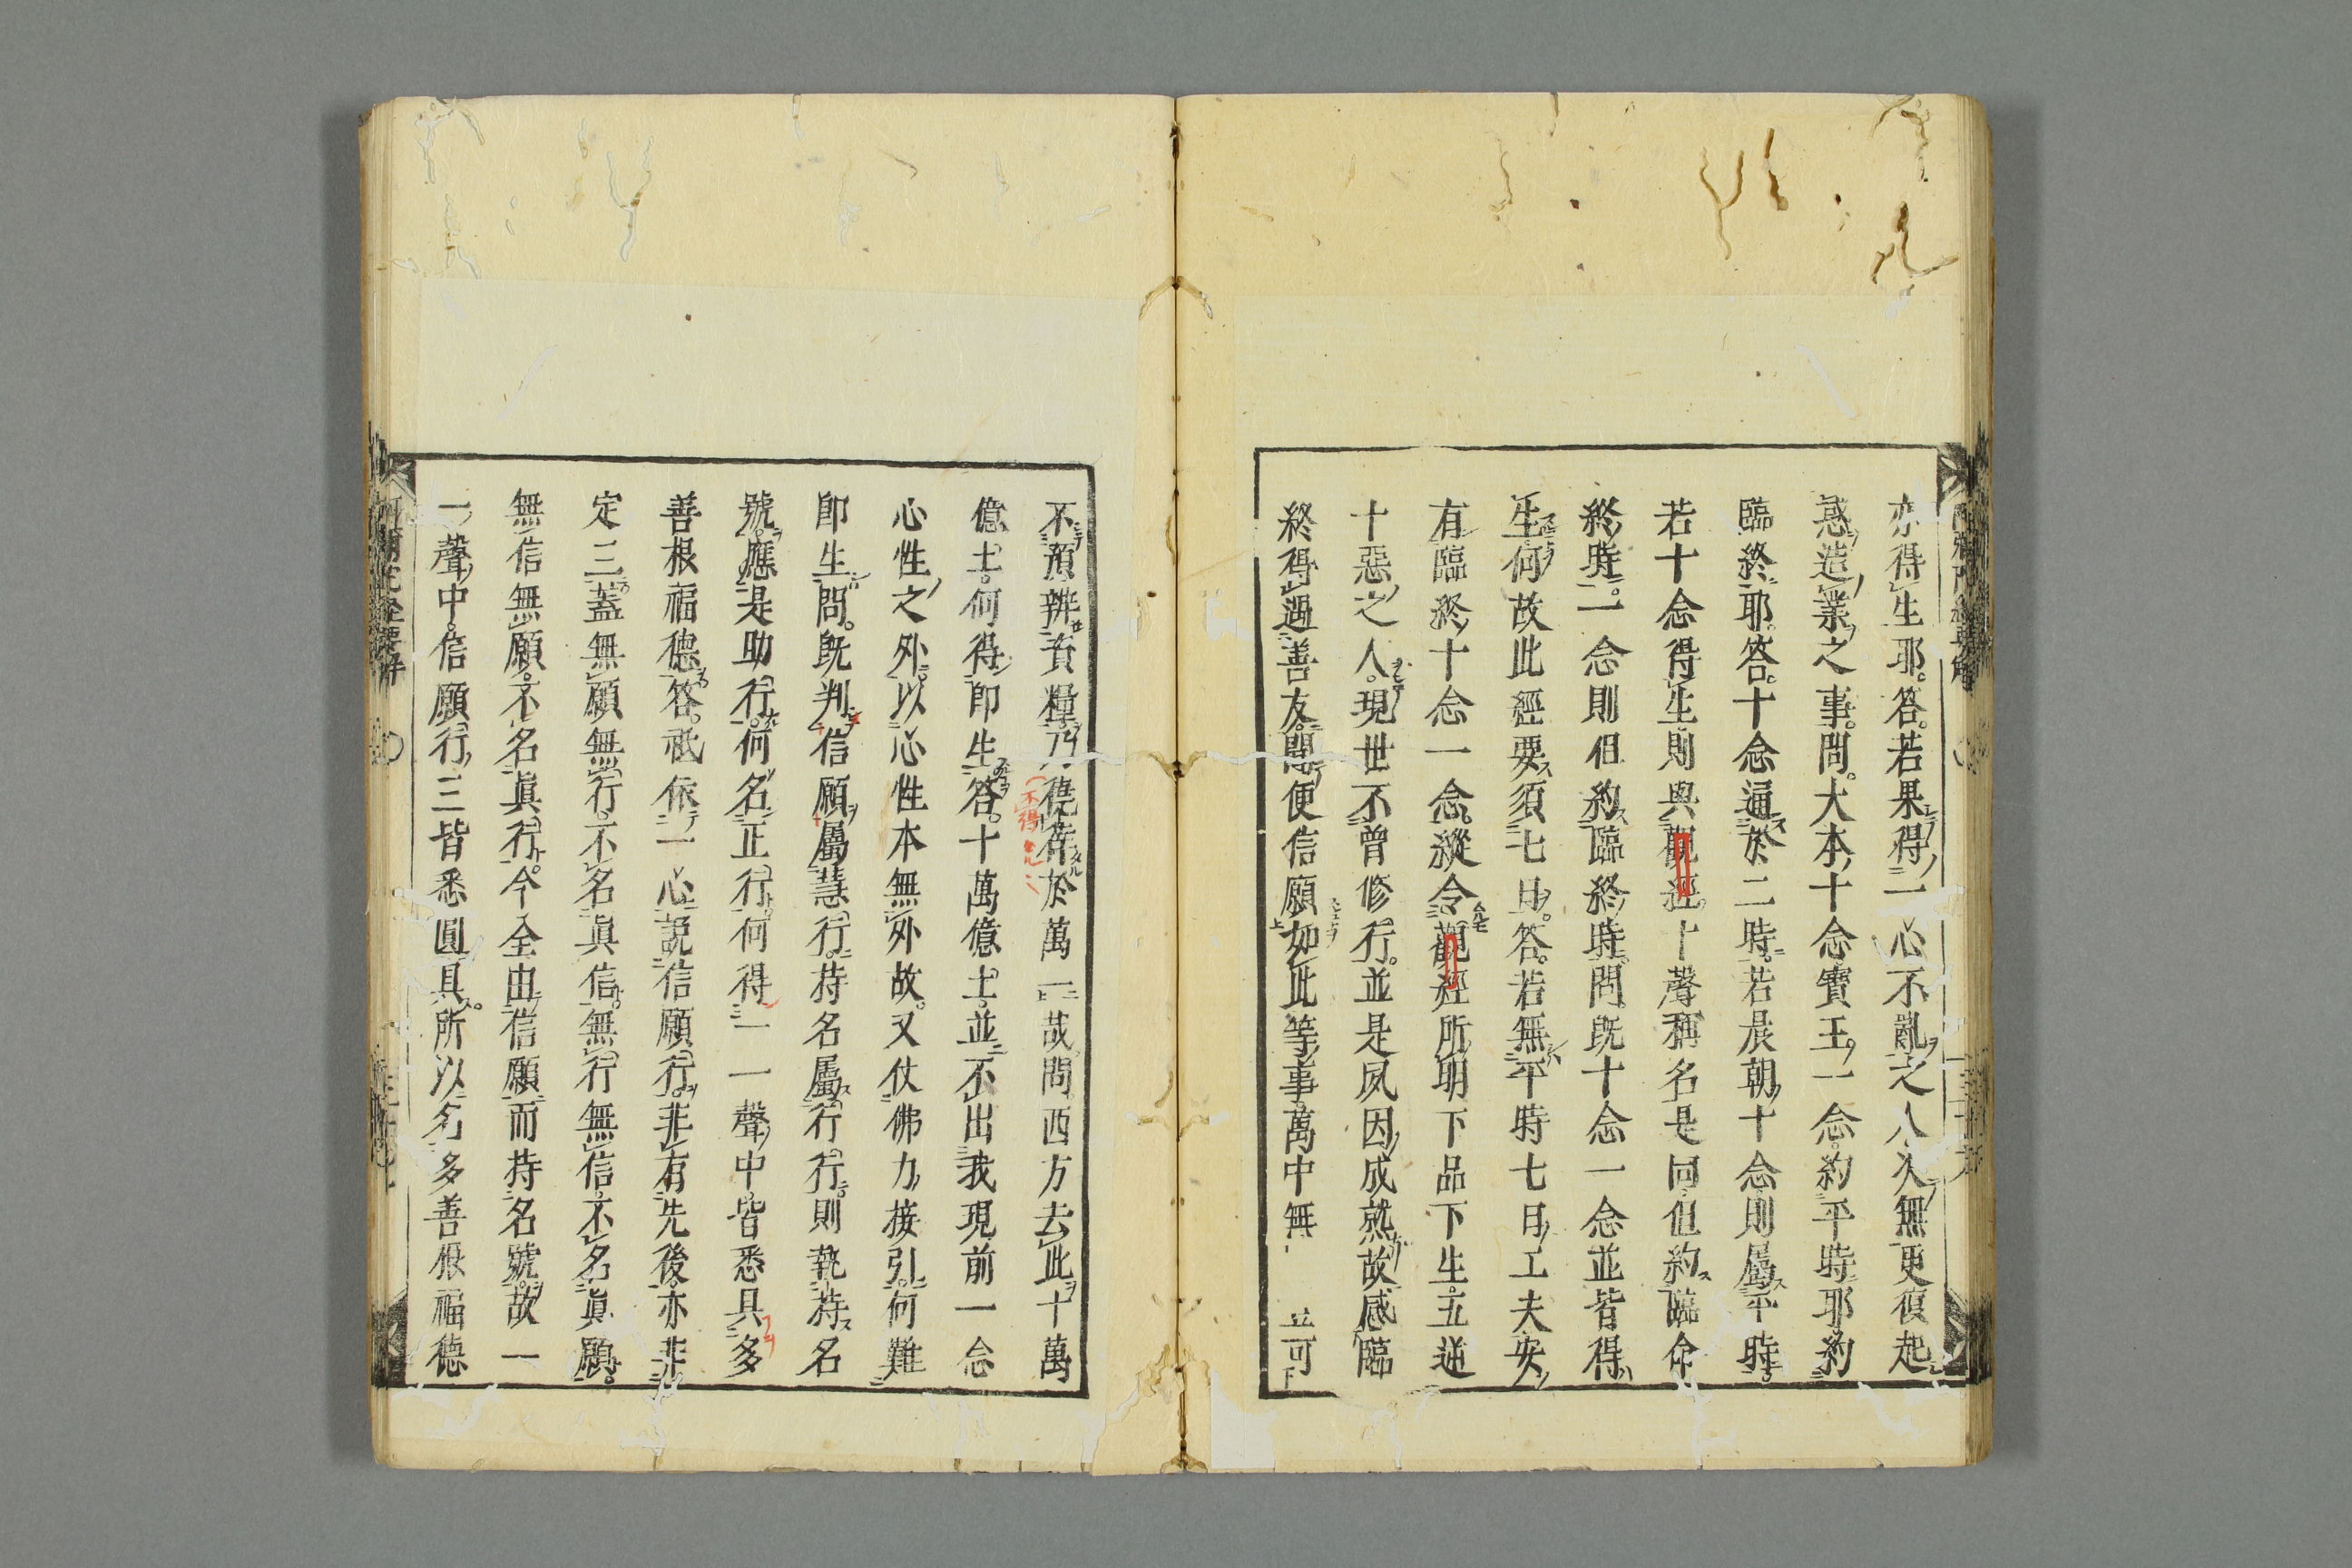 亦得生耶。答。若果得一心不亂之人次無更復起
惑造業之事。問。大本十念寶王一念約平時耶約
臨終耶。答。十念通於二時。若晨朝十念則屬平時。
若十念得生則與觀經十聲稱名是同但約臨命
終時。一念則但約臨終時。問。旣十念一念並皆得
生何故此經要須七日。答。若無平時七日工夫安
有臨終十念一念。縱令觀經所明下品下生五逆
十惡之人。現世不曾修行。並是夙因成就故感臨
終得過善友。聞便信願如此等事。萬中無 並可
不預辨資糧乃僥倖於萬一哉問西方去此十萬
(不得免)
億土。何得卽生。答。十萬億土。並不出我現前一念
心性之外。以心性本無外故。又仗佛力接引。何難
卽生問。旣判信願屬慧行。持名屬行行。則執持名
號。應是助行。何名正行。何得一一聲中。皆悉具多
善根福德。答。祗依一心說信願行。非有先後亦非
定三。蓋無願無行。不名眞信。無行無信。不名眞願。
無信無願。不名眞行。今全由信願而持名號。故一
一聲中。信願行三皆悉圓具。所以名多善根福德